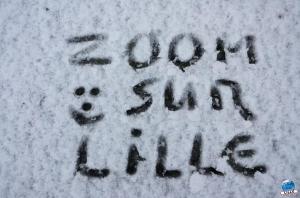 ZOOM
SUR
LILLE